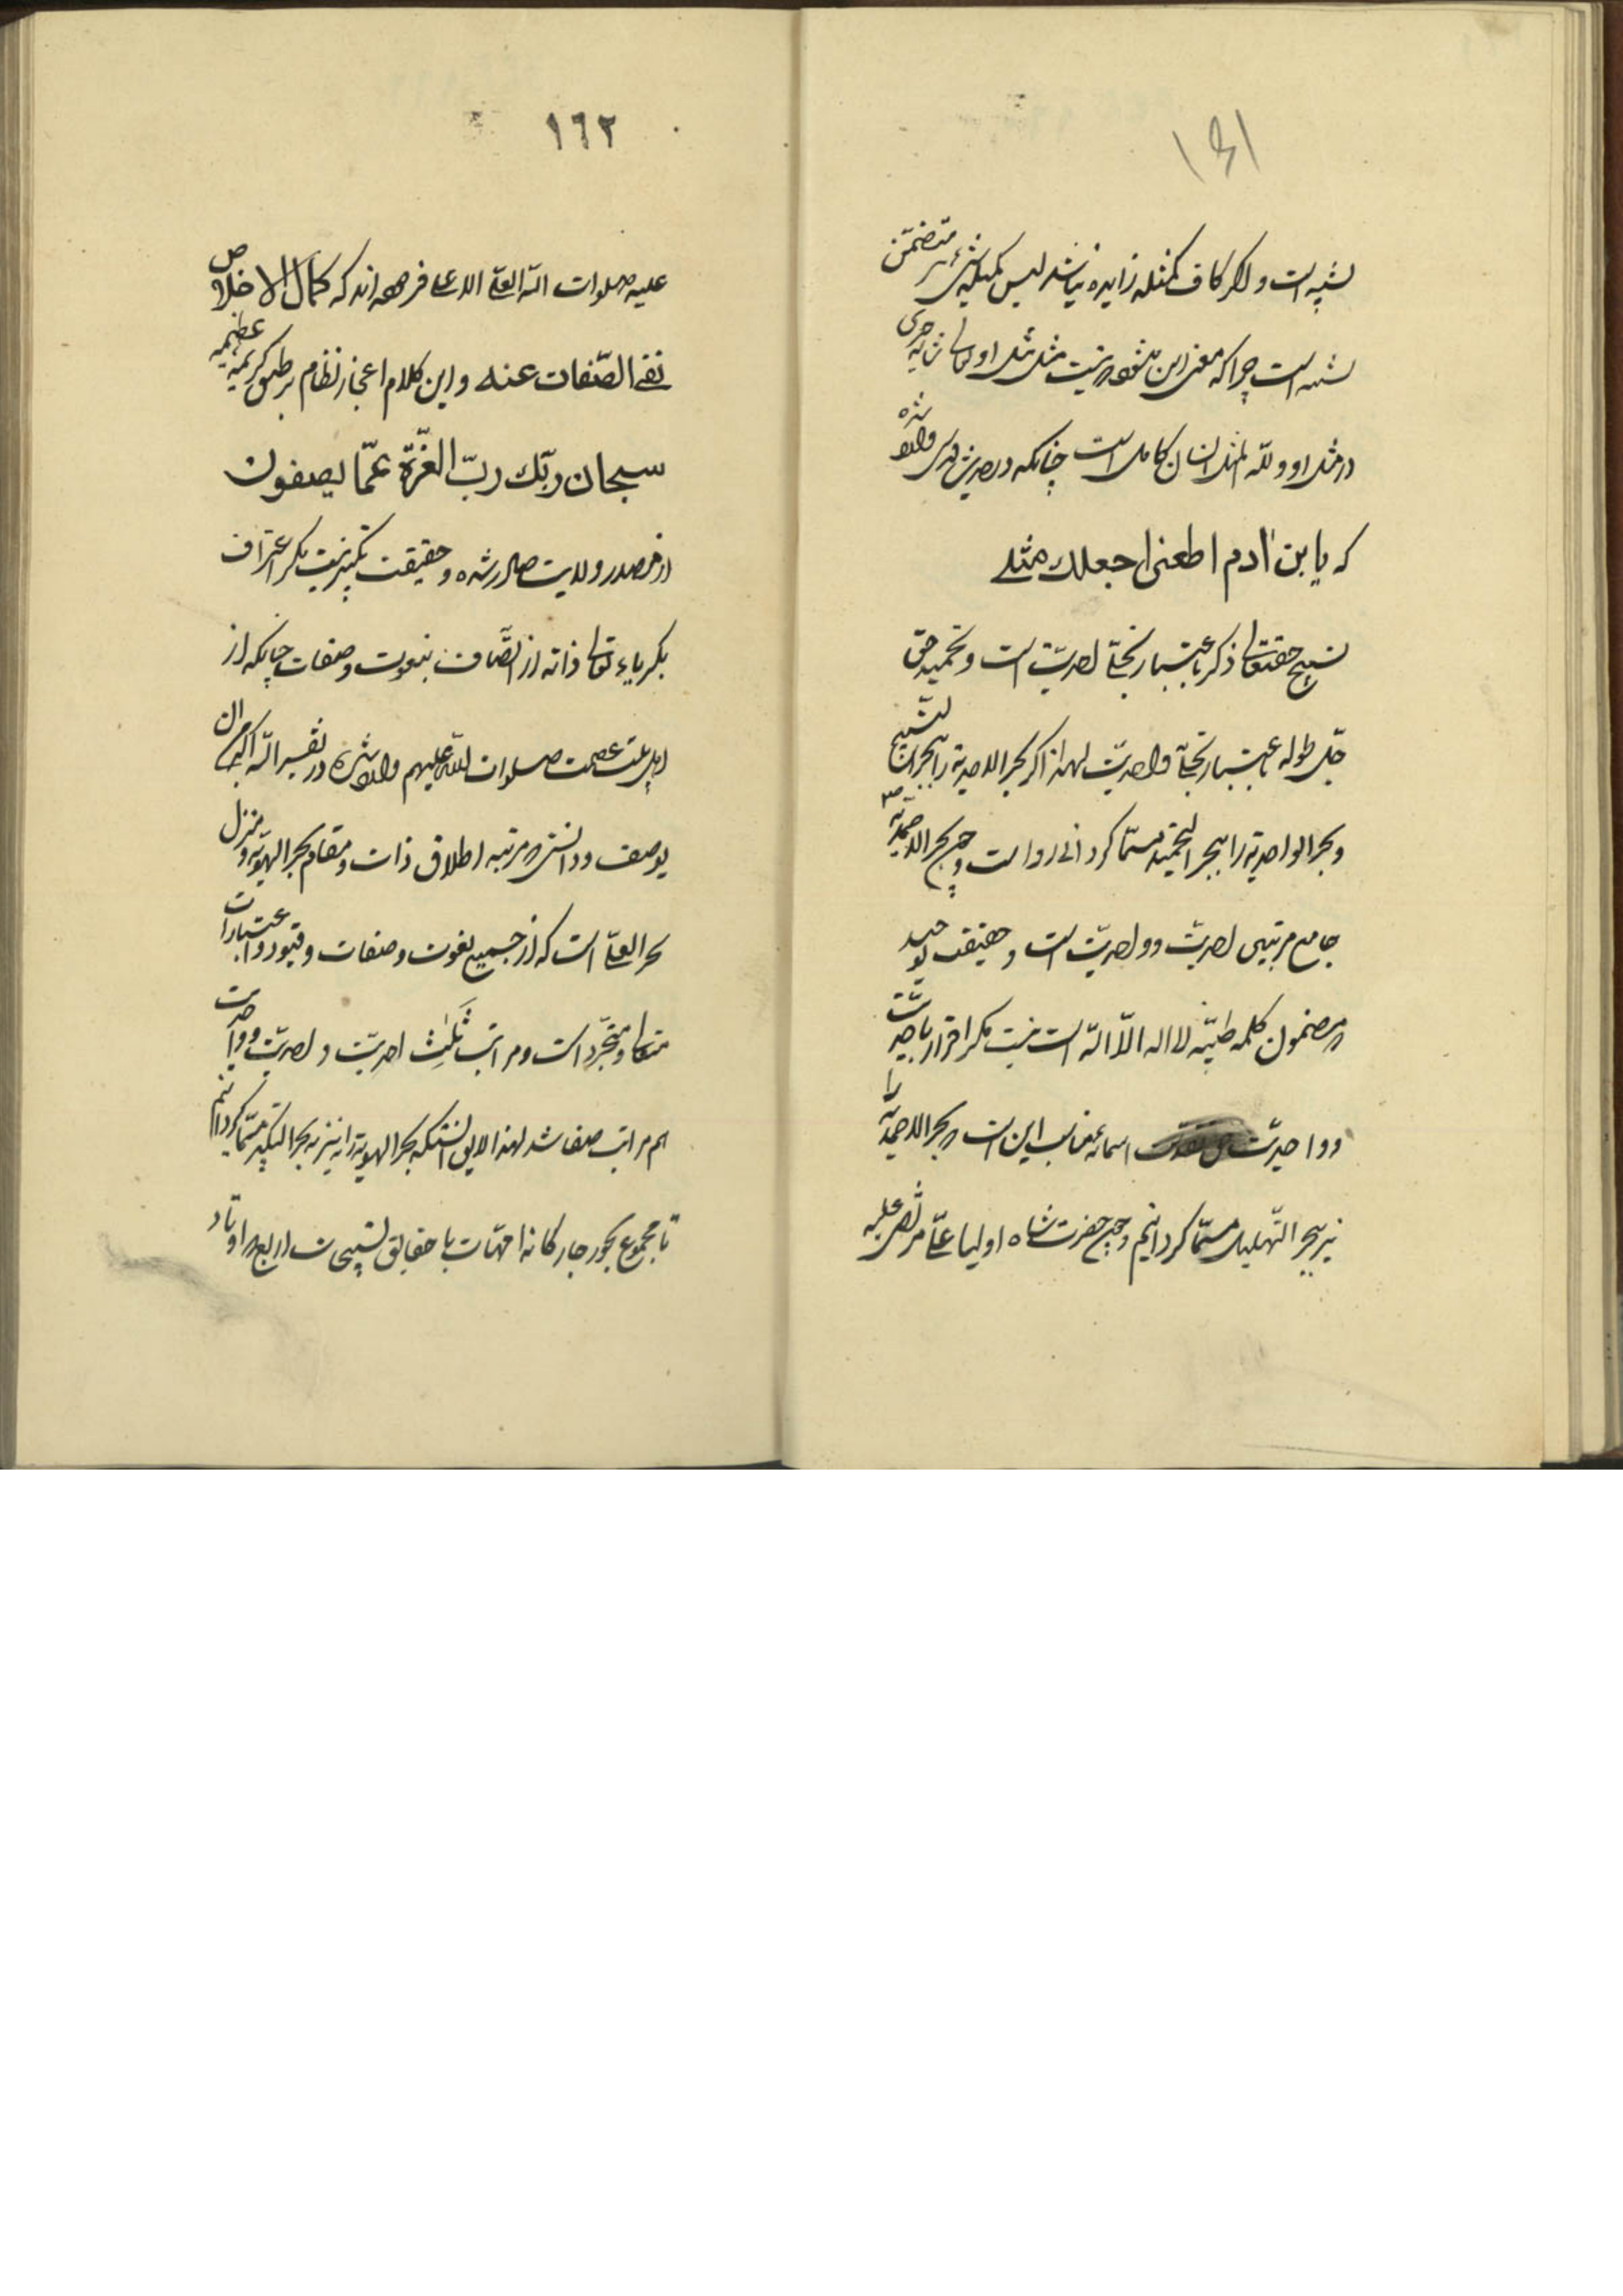 ١٦١
تشبیه است و اگر کاف کمثله زایده نباشد لیس کمثله شیء نیز متضمن
تشبیه است چرا که معنی این میشود که نیست مثل مثل او تعالی شانه چیزی
در مثل او ولله المثل انسان کامل است چنانکه در حدیث قدسی وارد شده
که یا بن آدم اطعنی اجعلک مثلی
تسبیح حقتعالی ذکره باعتبار تجلی احدیت است و تحمید حق
جل طوله باعتبار تجلی واحدیت لهذا اگر بحر الاحدیة را ببحر التسبیح
و بحر الواحدیة را ببحر التحمید مسما کردانی رواست و چون بحر الاحمدیة
جامع مرتبتی احدیت و واحدیت است و حقیقت توحید
که مضمون کلمه طیبه لا اله الا الله است نیست مکر اقرار باحدیت
و واحدیت اسمائه مناسب این است که بحر الاحمدیة را
نیز ببحر التهلیل مسما کردانیم و چون حضرت شاه اولیا علی مرتضی علیه
١٦٢
علیه صلوات الله العلی الاعلی فرموده اند که کمال الاخلاص
نفی الصفات عنه و این کلام اعجاز نظام بر طبق کریمه عظیمه
سبحان ربک رب العزة عما یصفون
از مصدر ولایت صادر شده و حقیقت تکبیر نیست مکر اعتراف
بکبریاء تعالی ذاته از اتصاف بنعوت و صفات چنانکه از
اهل بیت عصمت صلوات الله علیهم وارد شده در تفسیر الله اکبر من ان
یوصف و دانستی که مرتبه اطلاق ذات و مقام بحر الهویة و منزل
بحر العلی است که از جمیع نعوت و صفات و قیود و اعتبارات
متعالی و متجرد است و مراتب ثلث احدیت و احدیت و واحدیت
هم مراتب صفا شد لهذا لایق انستکه بحر الهویة را نیز به بحر التکبیر مسما کردانیم
تا مجموع بحور چار کانه امهات با حقایق تسبیحات اربعه که اوتاد